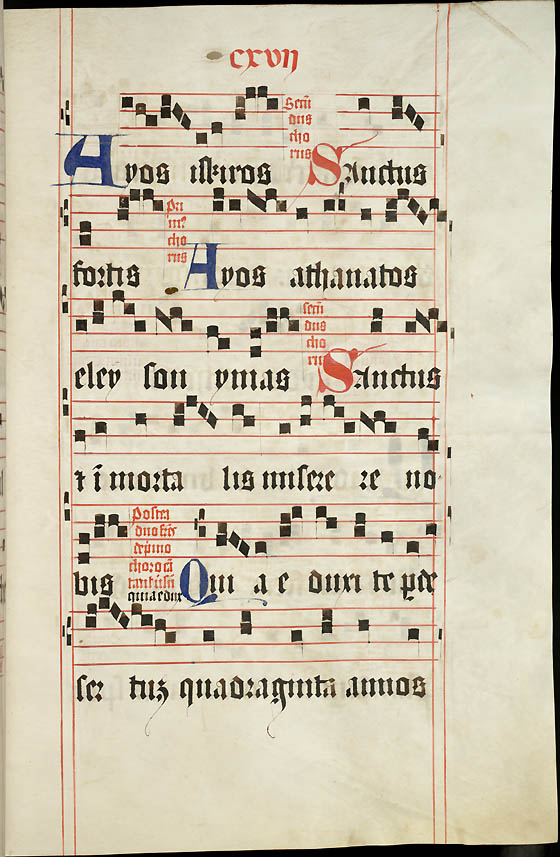 cxvij
Secū
dus
cho
rus
Ayos iskiros Sanctus
Pri
cho
rus
fortis Ayos athanatos
secū
dus
cho
rus
eley son ymas Sanctus
⁊ ī morta lis misere re no
Postea
choro cā
quia edux
bis Qui a e duxi te ꝑ de
ser tuꝫ quadraginta annos